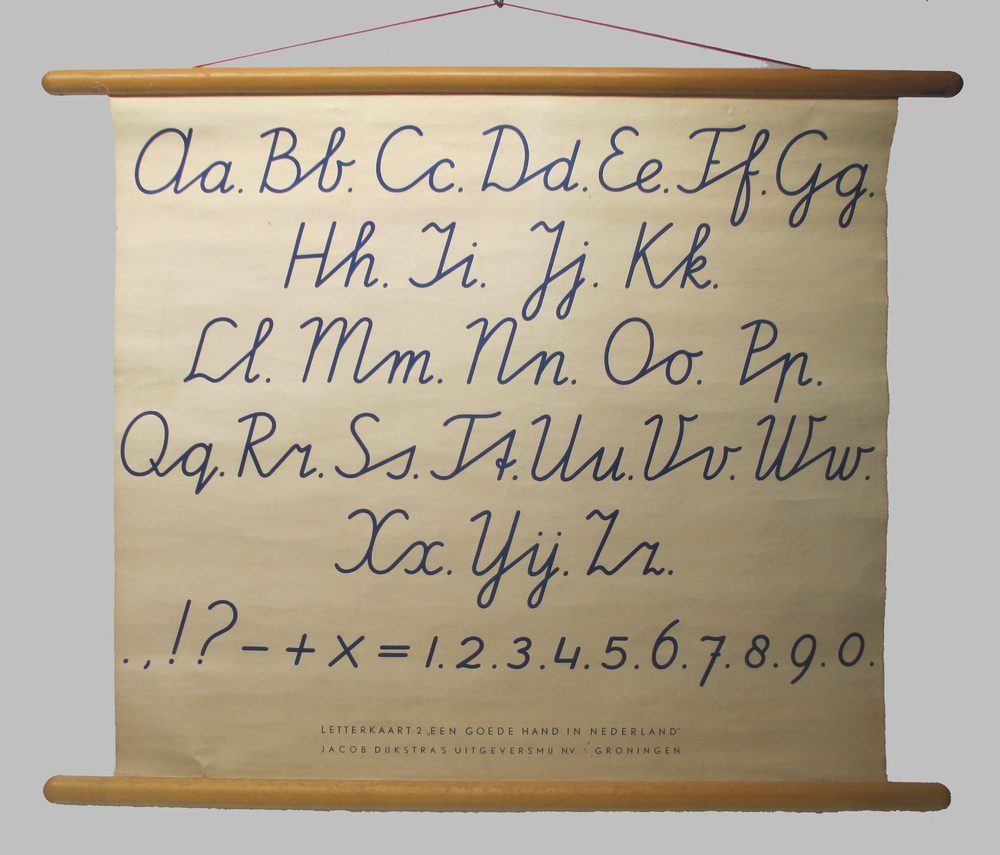 Aa. Bb. Cc. Dd. Ee. Ff. Gg.
Hh. Ii. Jj. Kk.
Ll. Mm. Nn. Oo. Pp.
Qq. Rr. Ss. Tt. Uu. Vv. Ww.
Xx. Yij. Zz.
. , ! ? − + x = 1. 2. 3. 4. 5. 6. 7. 8. 9. 0.
LETTERKAART 2 „EEN GOEDE HAND IN NEDERLAND"
JACOB DIJKSTRA'S UITGEVERSMIJ N.V. : GRONINGEN